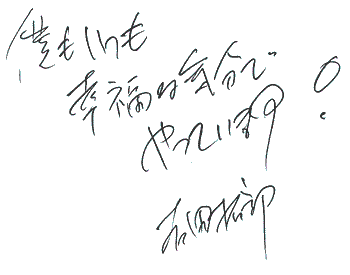 僕もいつも
幸福な気分で
やっています!